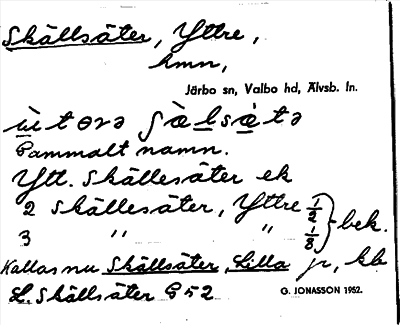 Skällsäter, Yttre,
hmn,
Järbo sn, Valbo hd, Älvsb. ln.
ùtərə ʃæ̀lsæ̀tə
Gammalt namn.
Ytt. Skällesäter ek
2 Skällesäter, Yttre 1/2
3 " " 1/8 } bek.
Kallas nu Skällsäter, Lilla jr, kb
L. Skällsäter G52
G. JONASSON 1952.